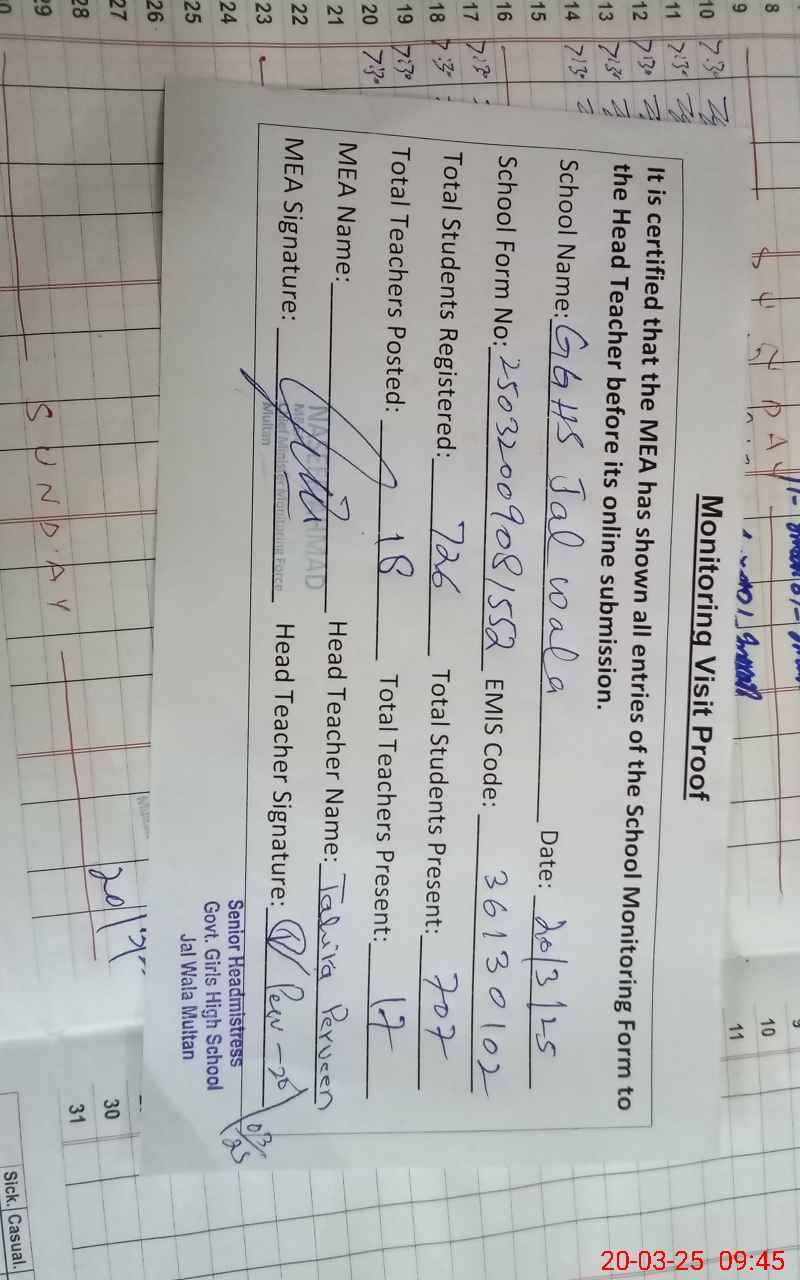 Monitoring Visit Proof
It is certified that the MEA has shown all entries of the School Monitoring Form to
the Head Teacher before its online submission.
School Name: GGHS Jal wala Date: 20/3/25
School Form No: 25032009081552 EMIS Code: 36130102
Total Students Registered: 726 Total Students Present: 707
Total Teachers Posted: 18 Total Teachers Present: 17
MEA Name: Head Teacher Name: Tahira Perveen
MEA Signature: Head Teacher Signature:
Chief Minister Monitoring Force
Multan
Senior Headmistress
Govt. Girls High School
Jal Wala Multan
SUNDAY
SUNDAY
8
9
10 7:30
11 7:30
12 7:30
13 7:30
14 7:30
15
16
17 7:30
18 7:30
19 7:30
20 7:30
21
22
23
24
25
26
27
28
29
9
10
11
30
31
Sick. Casual.
20-03-25 09:45